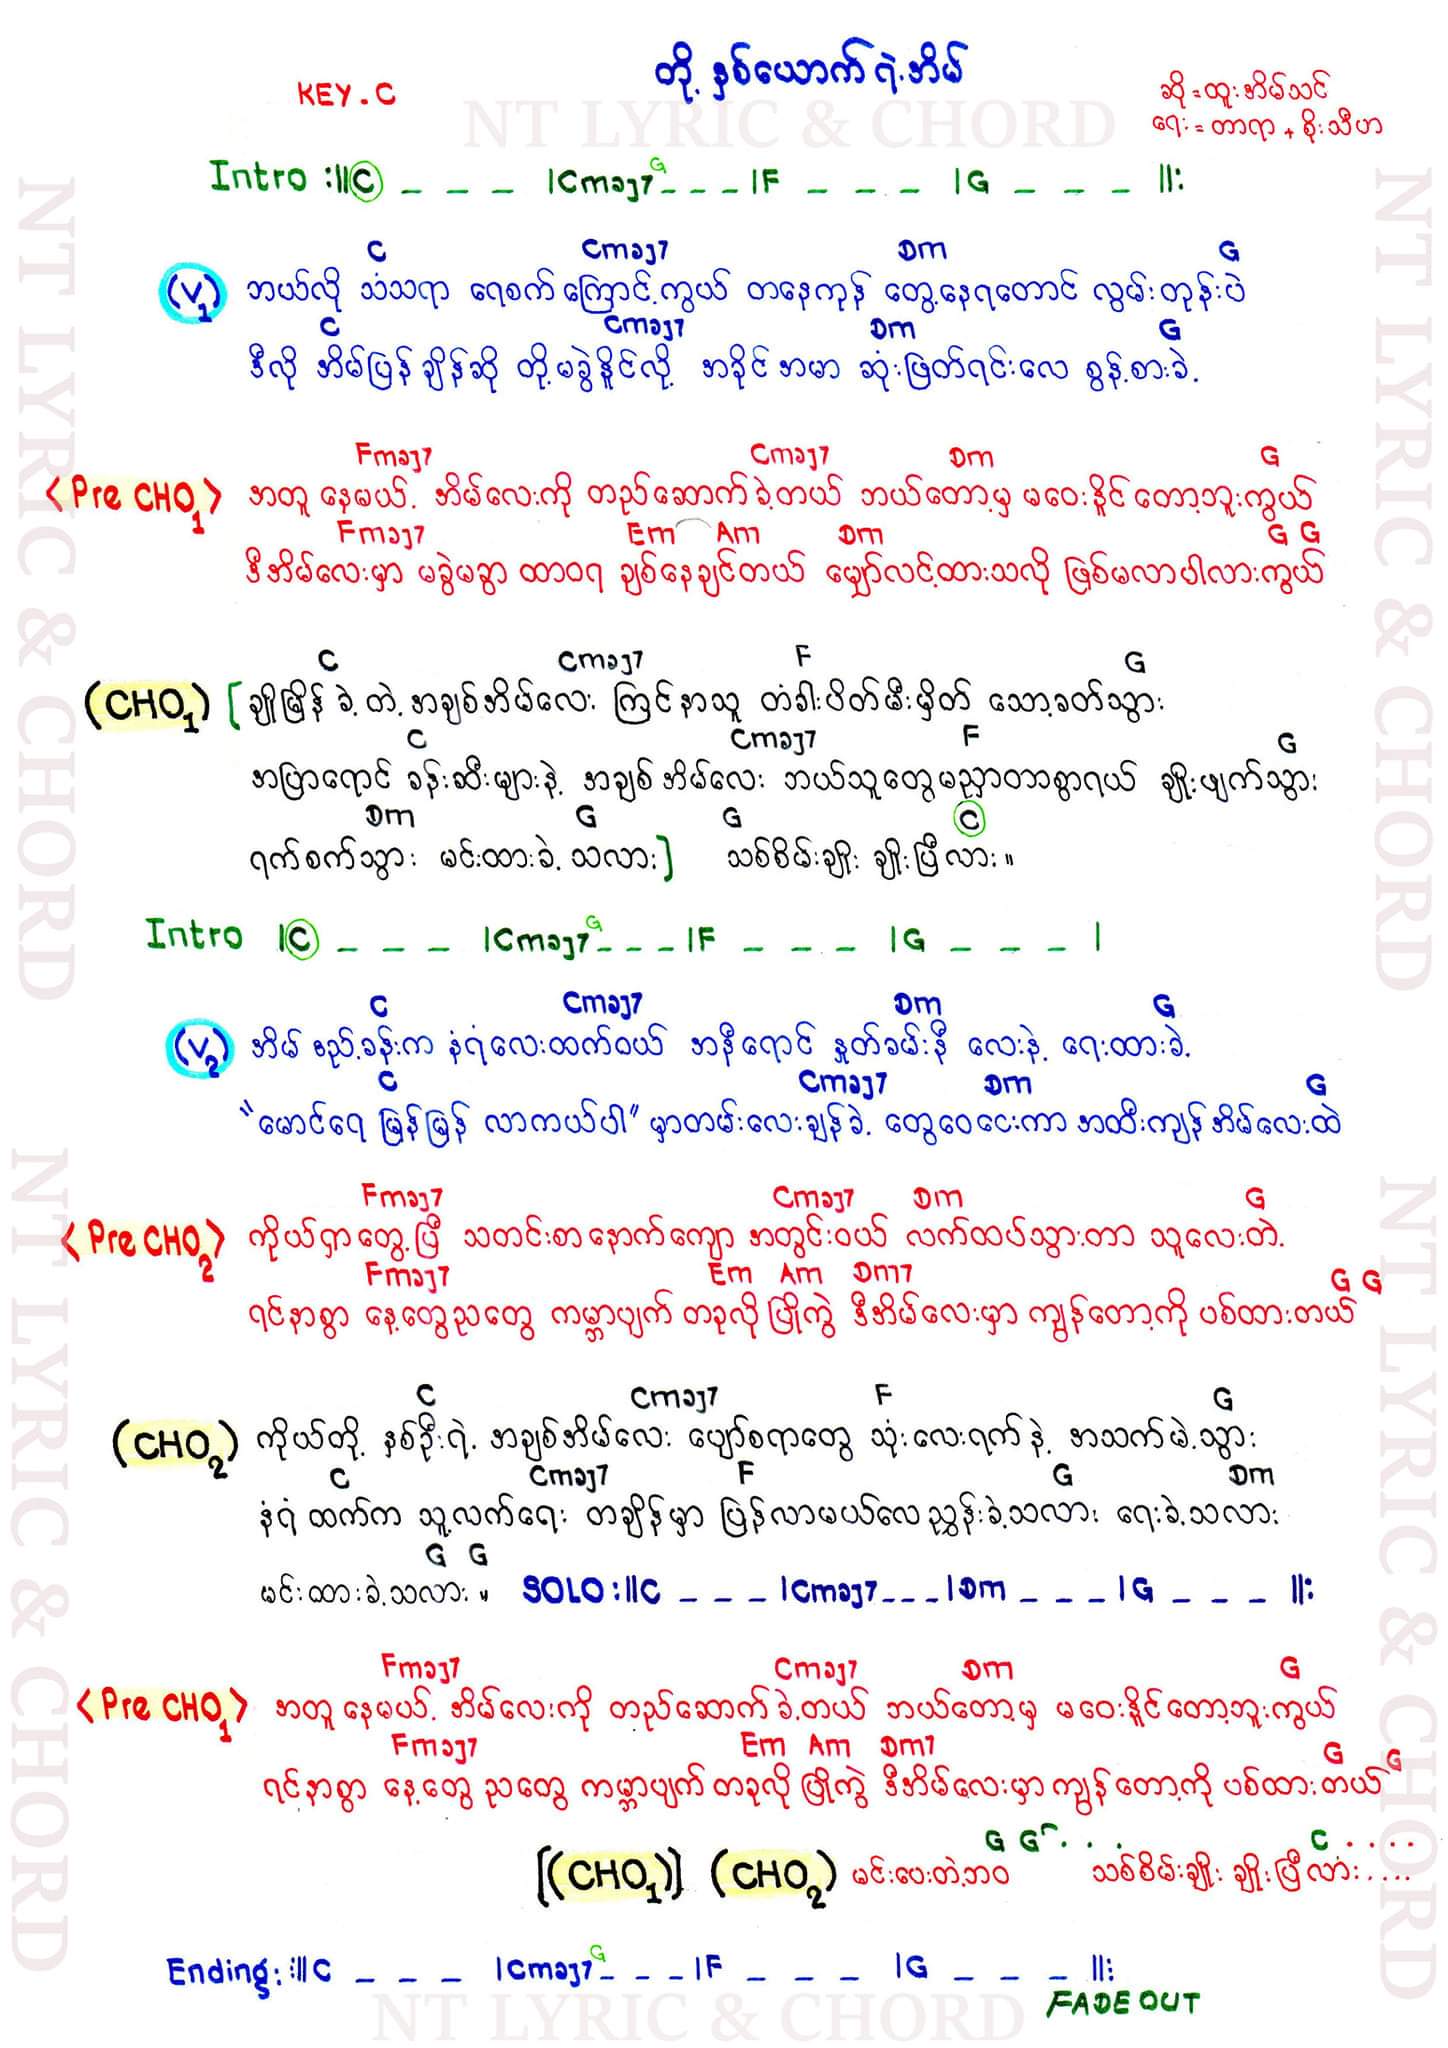 တို့နှစ်ယောက်ရဲ့အိမ်
KEY.C
ဆို = ထူးအိမ်သင်
ရေး = တာရာ + စိုးသီဟ
NT LYRIC & CHORD
Intro :||C _ _ _ |Cmaj7 G _ _ _ |F _ _ _ |G _ _ _ ||:
C Cmaj7 Dm G
(V1) ဘယ်လို သံသရာ ရေစက်ကြောင့်ကွယ် တနေကုန် တွေ့နေရတောင် လွမ်းတုန်းပဲ
C Cmaj7 Dm G
ဒီလို အိမ်ပြန်ချိန်ဆို တို့မခွဲနိုင်လို့ အခိုင်အမာ ဆုံးဖြတ်ရင်းလေ စွန့်စားခဲ့
Fmaj7 Cmaj7 Dm G
<Pre CHO1> အတူနေမယ့် အိမ်လေးကို တည်ဆောက်ခဲ့တယ် ဘယ်တော့မှ မဝေးနိူင်တော့ဘူးကွယ်
Fmaj7 Em Am Dm G G
ဒီအိမ်လေးမှာ မခွဲမခွာ ထာဝရ ချစ်နေချင်တယ် မျှော်လင့်ထားသလို ဖြစ်မလာပါလားကွယ်
C Cmaj7 F G
(CHO1) [ချိုမြိန်ခဲ့တဲ့ အချစ်အိမ်လေး ကြင်နာသူ တံခါးပိတ်မီးမှိတ် သော့ခတ်သွား
C Cmaj7 F G
အပြာရောင် ခန်းဆီးများနဲ့ အချစ်အိမ်လေး ဘယ်သူတွေမညှာတာစွာရယ် ချိုးဖျက်သွား
Dm G G C
ရက်စက်သွား မင်းထားခဲ့သလား] သစ်စိမ်းချိုး ချိုးပြီလား။
Intro |C _ _ _ |Cmaj7 G _ _ _ |F _ _ _ |G _ _ _ |
C Cmaj7 Dm G
(V2) အိမ်ဧည့်ခန်းက နံရံလေးထက်ဝယ် အနီရောင် နှုတ်ခမ်းနီ လေးနဲ့ ရေးထားခဲ့
C Cmaj7 Dm G
"မောင်ရေ မြန်မြန် လာကယ်ပါ" မှာတမ်းလေးချန်ခဲ့ တွေဝေငေးကာ အထီးကျန်အိမ်လေးထဲ
Fmaj7 Cmaj7 Dm G
<Pre CHO2> ကိုယ်ရှာတွေ့ပြီ သတင်းစာနောက်ကျော အတွင်းဝယ် လက်ထပ်သွားတာ သူလေးတဲ့
Fmaj7 Em Am Dm7 G G
ရင်နာစွာ နေ့တွေညတွေ ကမ္ဘာပျက် တခုလို ဖြိုကွဲ ဒီအိမ်လေးမှာ ကျွန်တော့ကို ပစ်ထားတယ်
C Cmaj7 F G
(CHO2) ကိုယ်တို့ နှစ်ဦးရဲ့ အချစ်အိမ်လေး ပျော်စရာတွေ သုံးလေးရက်နဲ့ အသက်မဲ့သွား
C Cmaj7 F G Dm
နံရံ ထက်က သူ့လက်ရေး တချိန်မှာ ပြန်လာမယ်လေ ညွှန်းခဲ့သလား ရေးခဲ့သလား
G G
မင်းထားခဲ့သလား ။ SOLO :||C _ _ _ |Cmaj7 _ _ _ |Dm _ _ _ |G _ _ _ ||:
Fmaj7 Cmaj7 Dm G
<Pre CHO1> အတူနေမယ့် အိမ်လေးကို တည်ဆောက်ခဲ့တယ် ဘယ်တော့မှ မဝေးနိူင်တော့ဘူးကွယ်
Fmaj7 Em Am Dm7 G G
ရင်နာစွာ နေ့တွေ ညတွေ ကမ္ဘာပျက် တခုလို ဖြိုကွဲ ဒီအိမ်လေးမှာ ကျွန်တော့ကို ပစ်ထားတယ်
G G . . . C . . . .
[(CHO1)] (CHO2) မင်းပေးတဲ့ဘဝ သစ်စိမ်းချိုး ချိုးပြီလား....
Ending: :||C _ _ _ |Cmaj7 G _ _ _ |F _ _ _ |G _ _ _ ||:
FADE OUT
NT LYRIC & CHORD
NT LYRIC & CHORD
NT LYRIC & CHORD
NT LYRIC & CHORD
NT LYRIC & CHORD